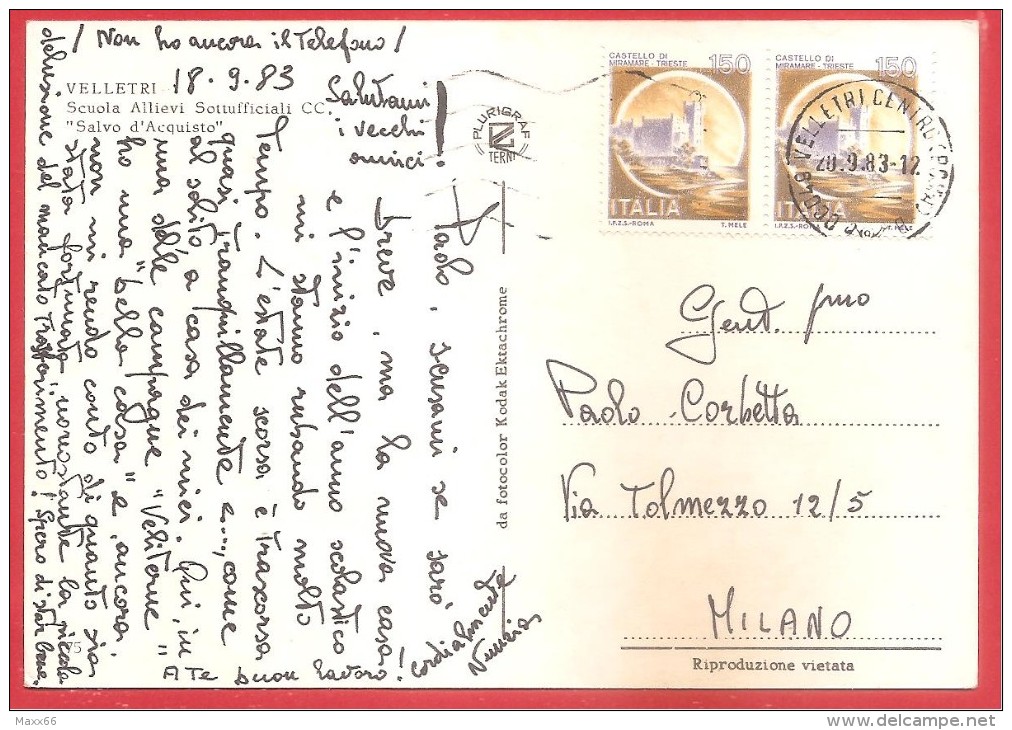 ! Non ho ancora il telefono!
18.9.83
VELLETRI
Scuola Allievi Sottufficiali CC.
"Salvo d'Acquisto"
Salutami
i vecchi
amici!
PLURIGRAF
TERNI
CASTELLO DI
MIRAMARE - TRIESTE
150
ITALIA
I.P.Z.S.-ROMA
T. MELE
CASTELLO DI
MIRAMARE - TRIESTE
150
ITALIA
I.P.Z.S.-ROMA
T. MELE
VELLETRI CENTRO
20.9.83-12
Paolo, scusami se sarò
breve, ma la nuova casa
e l'inizio dell'anno scolastico
mi stanno rubando molto
tempo. L'estate scorsa è trascorsa
quasi tranquillamente e..., come
al solito, a casa dei miei. Qui, in
una delle campagne "Veliterne"
ho una "bella casa" e, ancora,
non mi rendo conto di quanto sia
stata fortunata, nonostante la piccola
delusione del mancato trasferimento! Spero di star bene.
A te buon lavoro!
Cordialmente
Nunzia
75
da fotocolor Kodak Ektachrome
Gent.mo
Paolo Corbetta
Via Tolmezzo 12/5
MILANO
Riproduzione vietata
Maxx66
www.delcampe.net